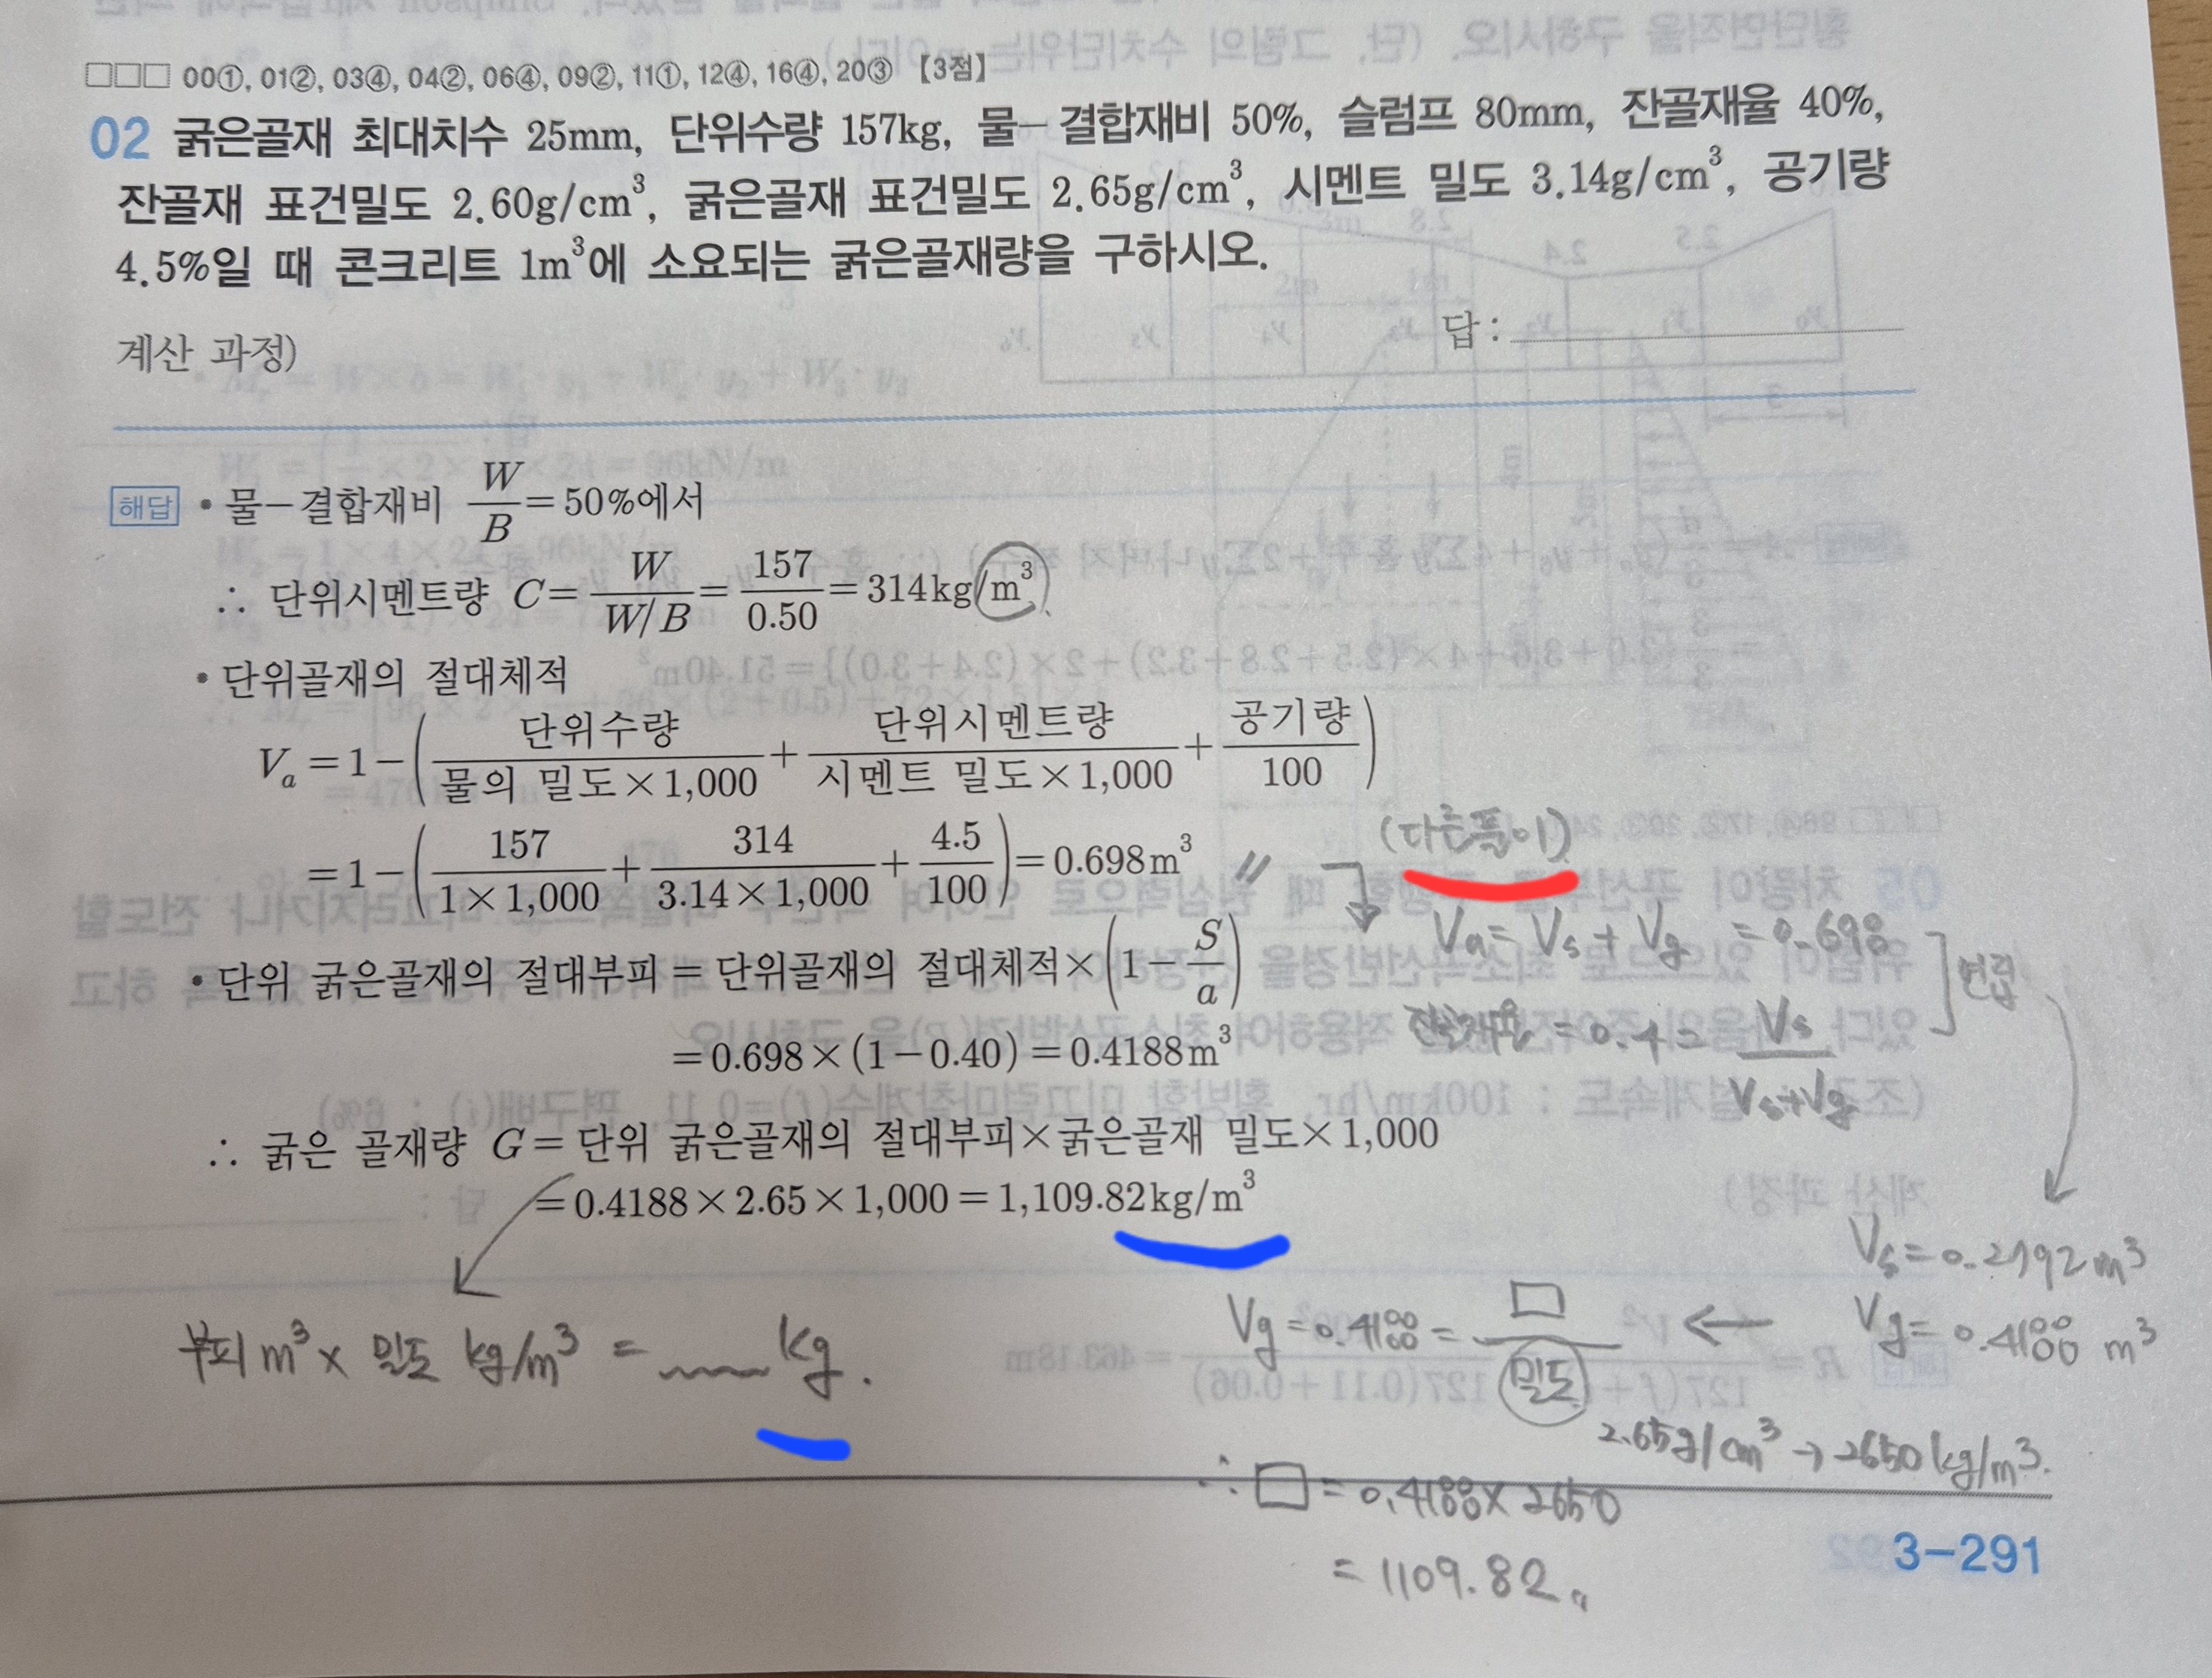 □□□ 00①, 01②, 03④, 04②, 06④, 09②, 11①, 12④, 16④, 20③ 【3점】
02 굵은골재 최대치수 25mm, 단위수량 157kg, 물-결합재비 50%, 슬럼프 80mm, 잔골재율 40%,
잔골재 표건밀도 2.60g/cm³, 굵은골재 표건밀도 2.65g/cm³, 시멘트 밀도 3.14g/cm³, 공기량
4.5%일 때 콘크리트 1m³에 소요되는 굵은골재량을 구하시오.
계산 과정) 답 :
해답 • 물-결합재비 W/B = 50%에서
∴ 단위시멘트량 C = W/(W/B) = 157/0.50 = 314kg/m³
• 단위골재의 절대체적
Va = 1 - (단위수량/(물의 밀도×1,000) + 단위시멘트량/(시멘트 밀도×1,000) + 공기량/100)
= 1 - (157/(1×1,000) + 314/(3.14×1,000) + 4.5/100) = 0.698m³
• 단위 굵은골재의 절대부피 = 단위골재의 절대체적 × (1 - S/a)
= 0.698 × (1 - 0.40) = 0.4188m³
∴ 굵은 골재량 G = 단위 굵은골재의 절대부피 × 굵은골재 밀도 × 1,000
= 0.4188 × 2.65 × 1,000 = 1,109.82kg/m³
부피 m³ × 밀도 kg/m³ = kg.
(다른풀이)
Va = Vs + Vg = 0.698
잔골재율 = 0.4 = Vs/(Vs+Vg)
연립
Vs = 0.2792 m³
Vg = 0.4188 m³
Vg = 0.4188 = □/밀도
2.65g/cm³ → 2650kg/m³.
∴ □ = 0.4188 × 2650
= 1109.82
3-291